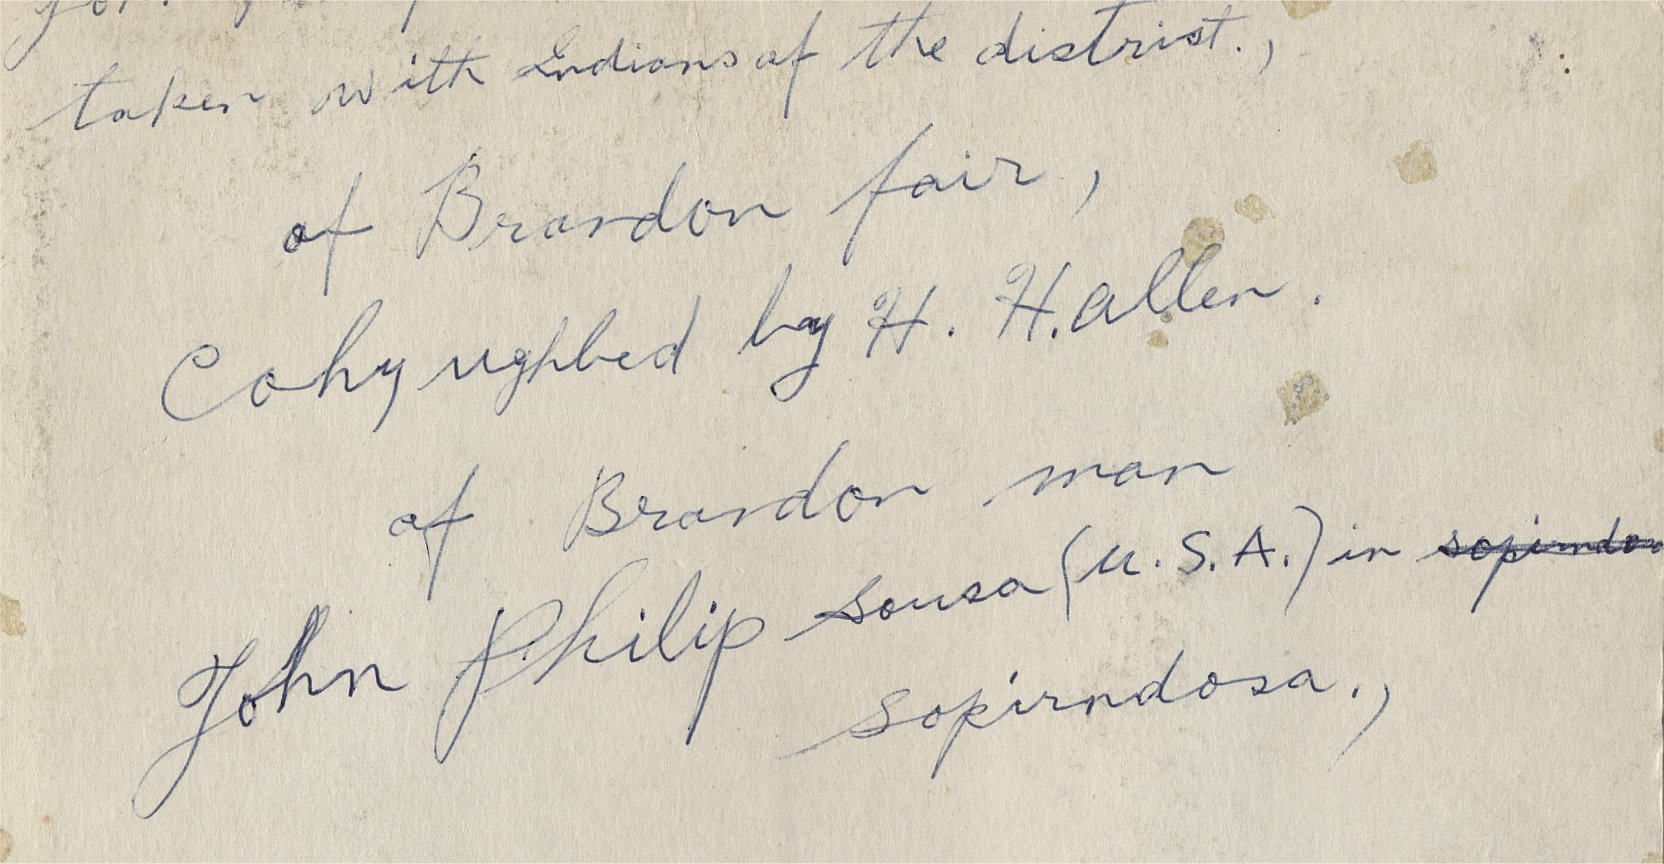 taken with Indians of the district.,
of Brandon fair,
Cohyughbed by H. H. Allen.
of Brandon man
John Philip Sousa (U.S.A.) in
sopirndosa.,